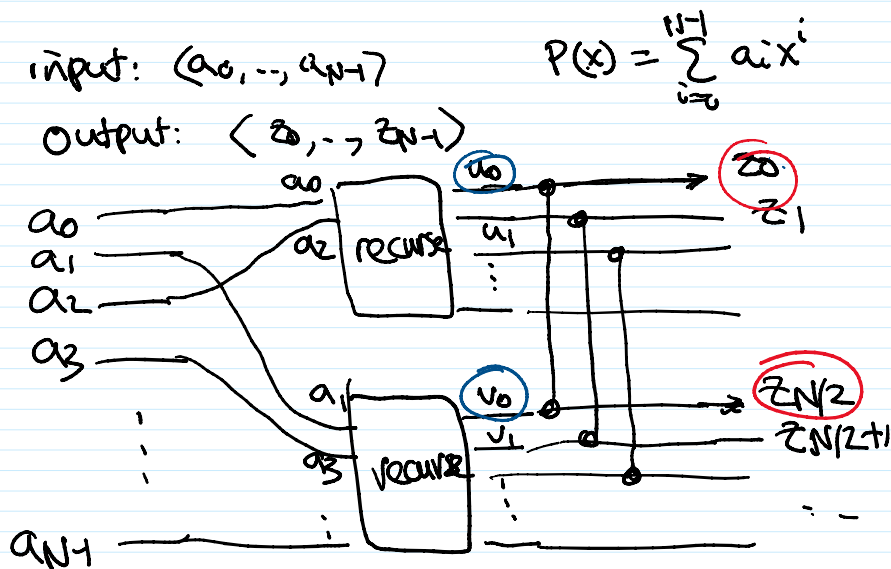 input: ⟨a0, .., aN-1⟩
P(x) = N-1 ∑ i=0 ai x^i
output: ⟨z0, .., zN-1⟩
a0
a1
a2
a3
aN-1
a0
a2
recurse
u0
u1
z0
z1
a1
a3
recurse
v0
v1
zN/2
zN/2+1